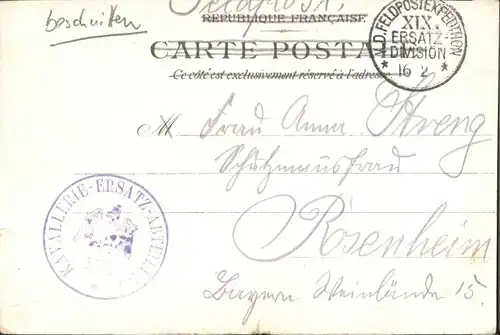 beschnitten
Feldpost.
REPUBLIQUE FRANÇAISE
CARTE POSTA
Ce côté est exclusivement réservé à l'adresse
K.D.FELDPOSTEXPEDITION
XIX.
ERSATZ-
DIVISION
* 16 2 *
M Frau Anna Streng
Schutzmannsfrau
Rosenheim
Bayern Weinlände 15.
KAVALLERIE-ERSATZ-ABTEIL